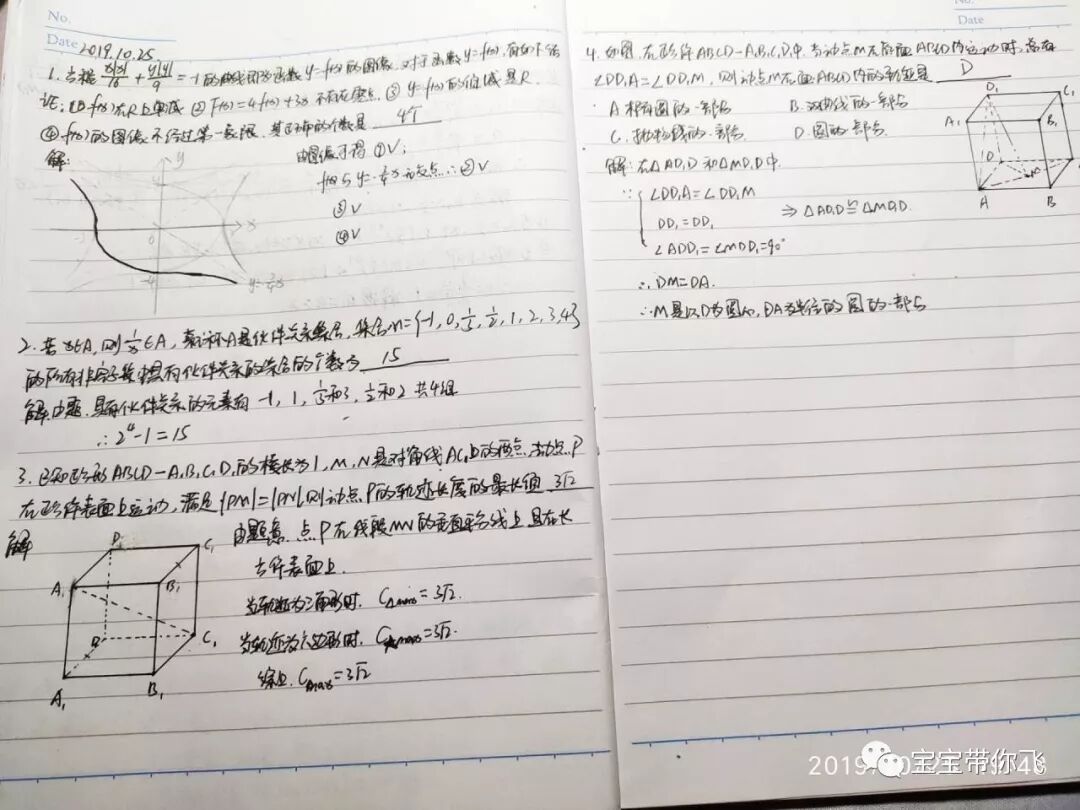 No.
Date 2019.10.25
1. 方程 x|x|/16 + y|y|/9 = -1 的曲线即为函数 y=f(x) 的图像, 对于函数 y=f(x), 有如下结
论: ① f(x)在R上单减 ② F(x)=4f(x)+3x 不存在零点 ③ y=f(x)的值域是R
④ f(x)的图像不经过第一象限, 其正确的个数是 4个
解: 由图像可得 ①√;
f(x)与y=-3/4x无交点 ∴②√
③√
④√
y
x
0
-4
2. 若x∈A, 则1/x∈A, 就称A是伙伴关系集合, 集合M={-1, 0, 1/3, 1/2, 1, 2, 3, 4}
的所有非空子集中具有伙伴关系的集合的个数为 15
解: 由题, 具有伙伴关系的元素有 -1, 1, 1/3和3, 1/2和2 共4组
∴ 2⁴-1=15
3. 已知正方形ABCD-A₁B₁C₁D₁的棱长为1, M, N是对角线AC₁上的两点, 动点P
在正方体表面上运动, 满足|PM|=|PN|, 则动点P的轨迹长度的最长值 3√2
解
由题意, 点P在线段MN的垂直平分线上且在长
方体表面上.
当轨迹为三角形时. C△max=3√2.
当轨迹为六边形时. Cmax=3√2.
综上. Cmax=3√2
D₁
C₁
A₁
B₁
D
C₁
A₁
B₁
No.
Date
4. 如图, 在正方体ABCD-A₁B₁C₁D₁中, 当动点M在底面ABCD内运动时, 总有
∠DD₁A=∠DD₁M, 则动点M在面ABCD内的轨迹是 D
A 椭圆的一部分 B. 双曲线的一部分
C. 抛物线的一部分 D. 圆的一部分
解: 在△AD₁D和△MD₁D中.
∵ ∠DD₁A=∠DD₁M
DD₁=DD₁ ⇒ △AD₁D≌△MD₁D.
∠ADD₁=∠MDD₁=90°
∴ DM=DA.
∴ M是以D为圆心, DA为半径的圆的一部分
D₁
C₁
A₁
B₁
D
M
A
B
宝宝带你飞